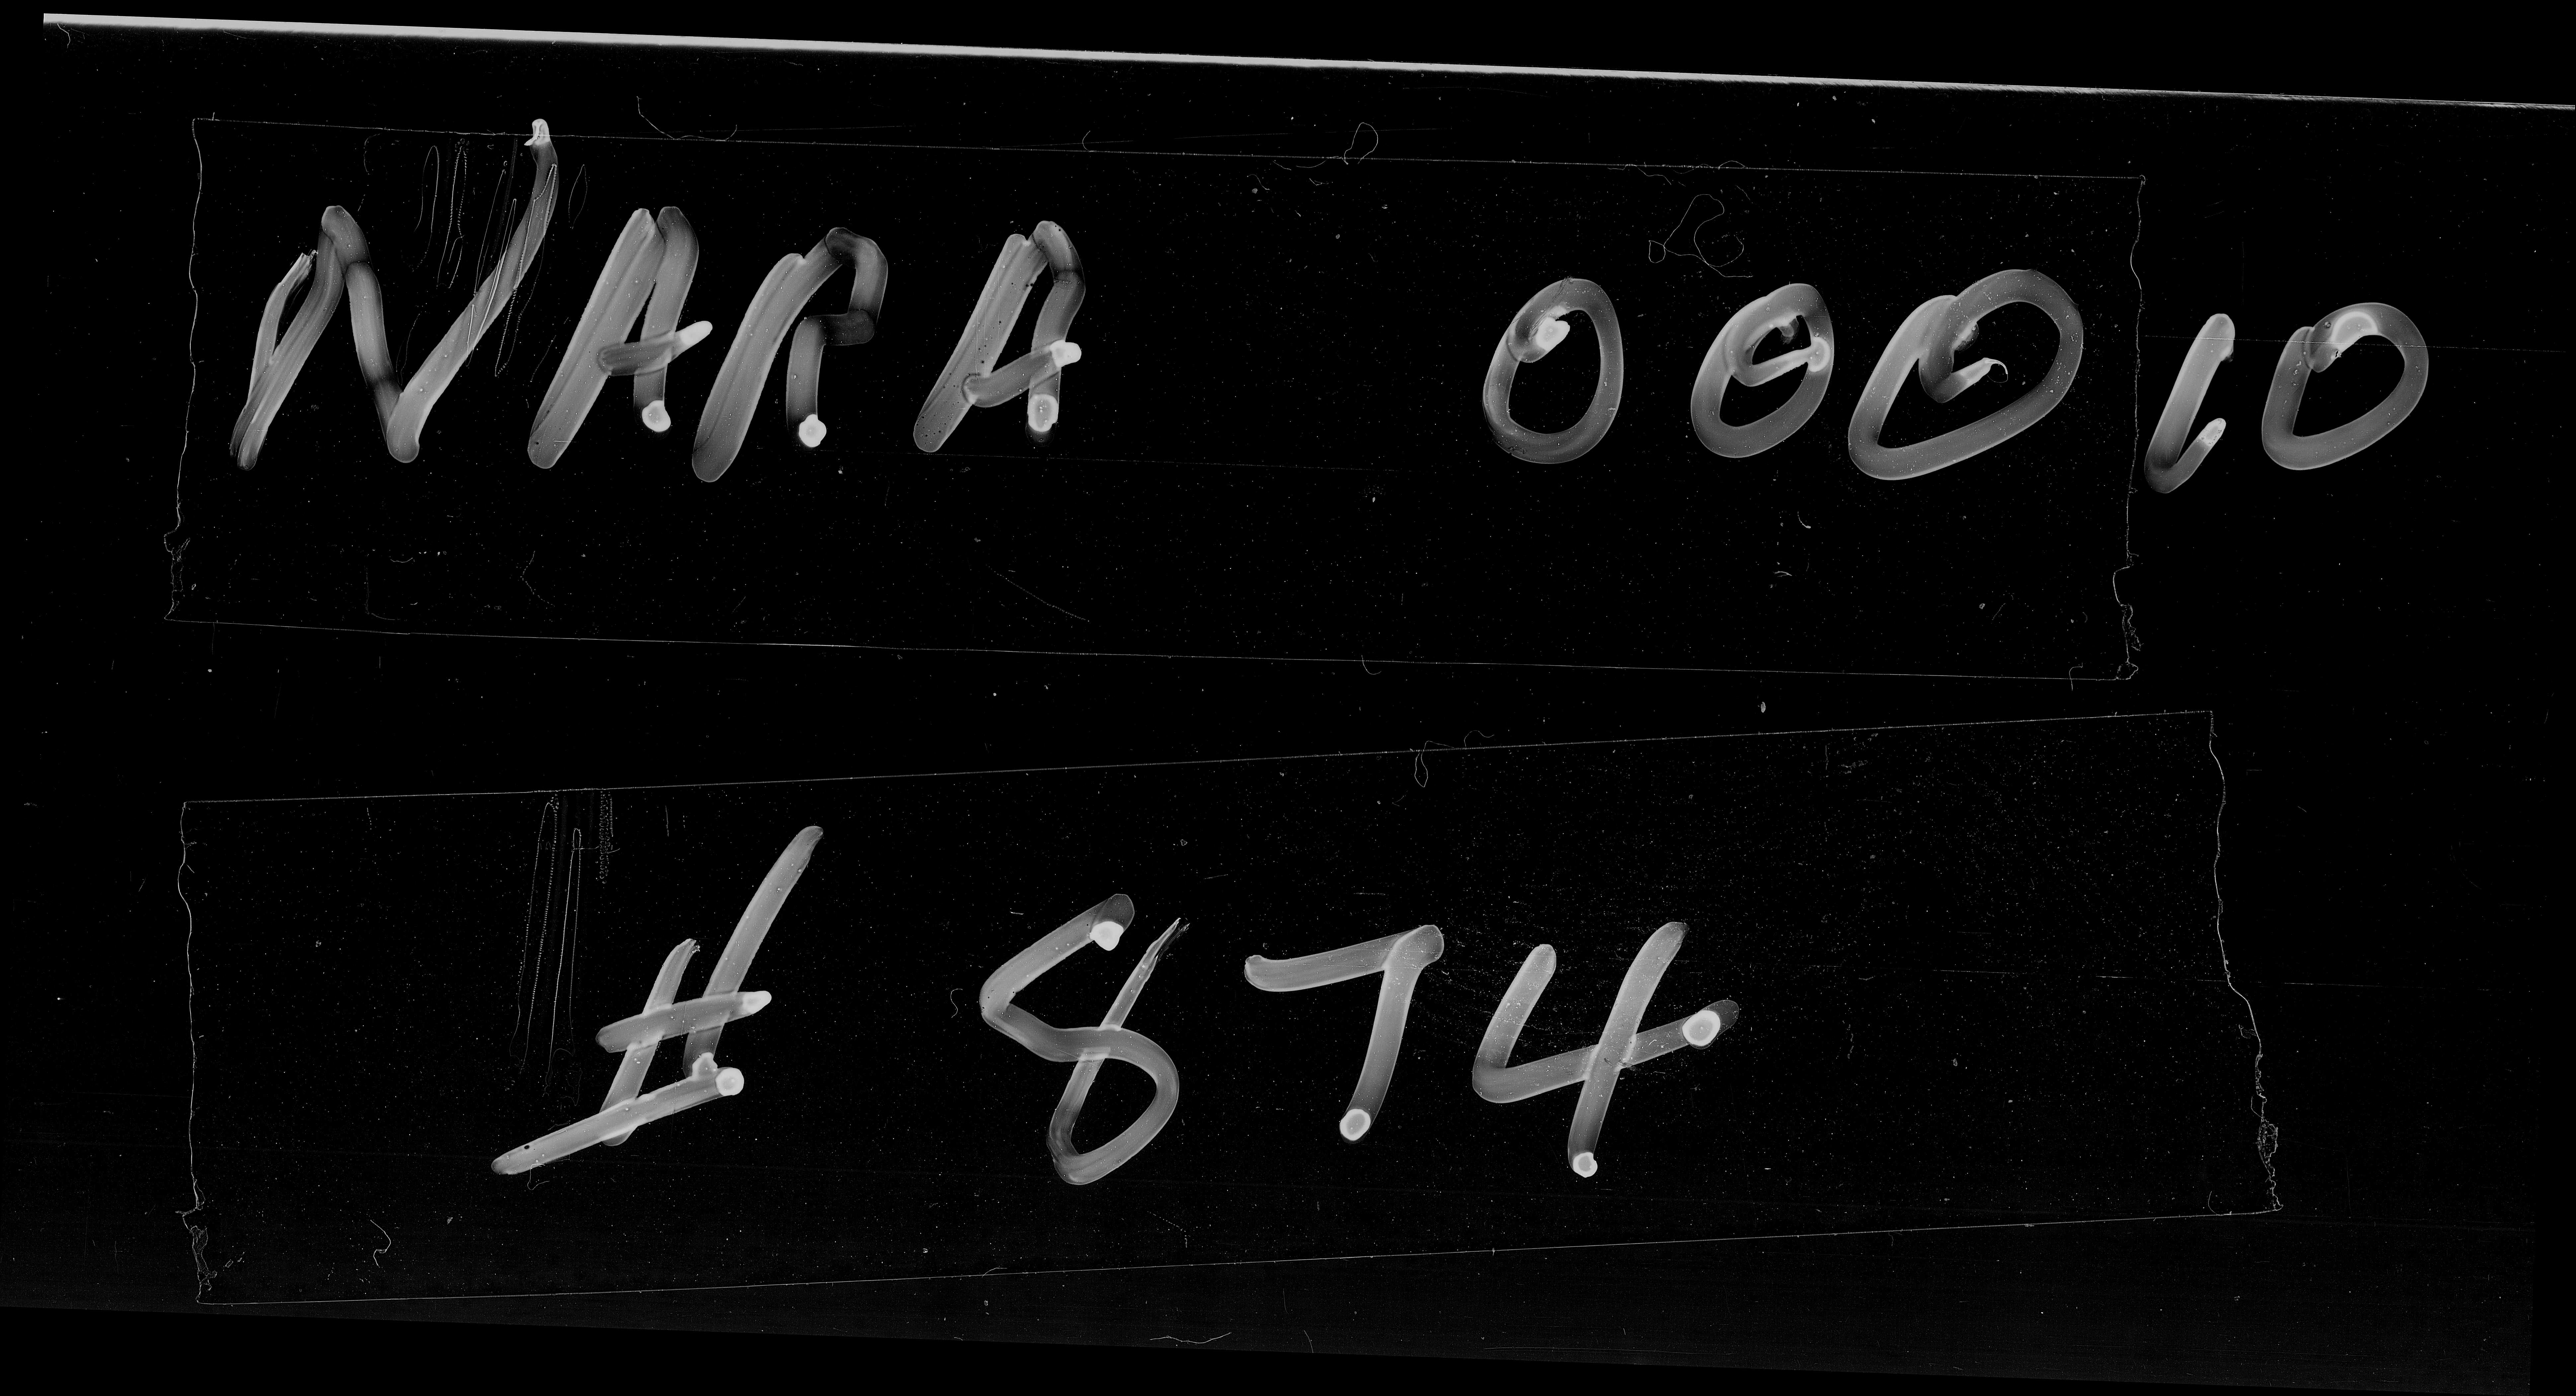 NARA 00010
# 874